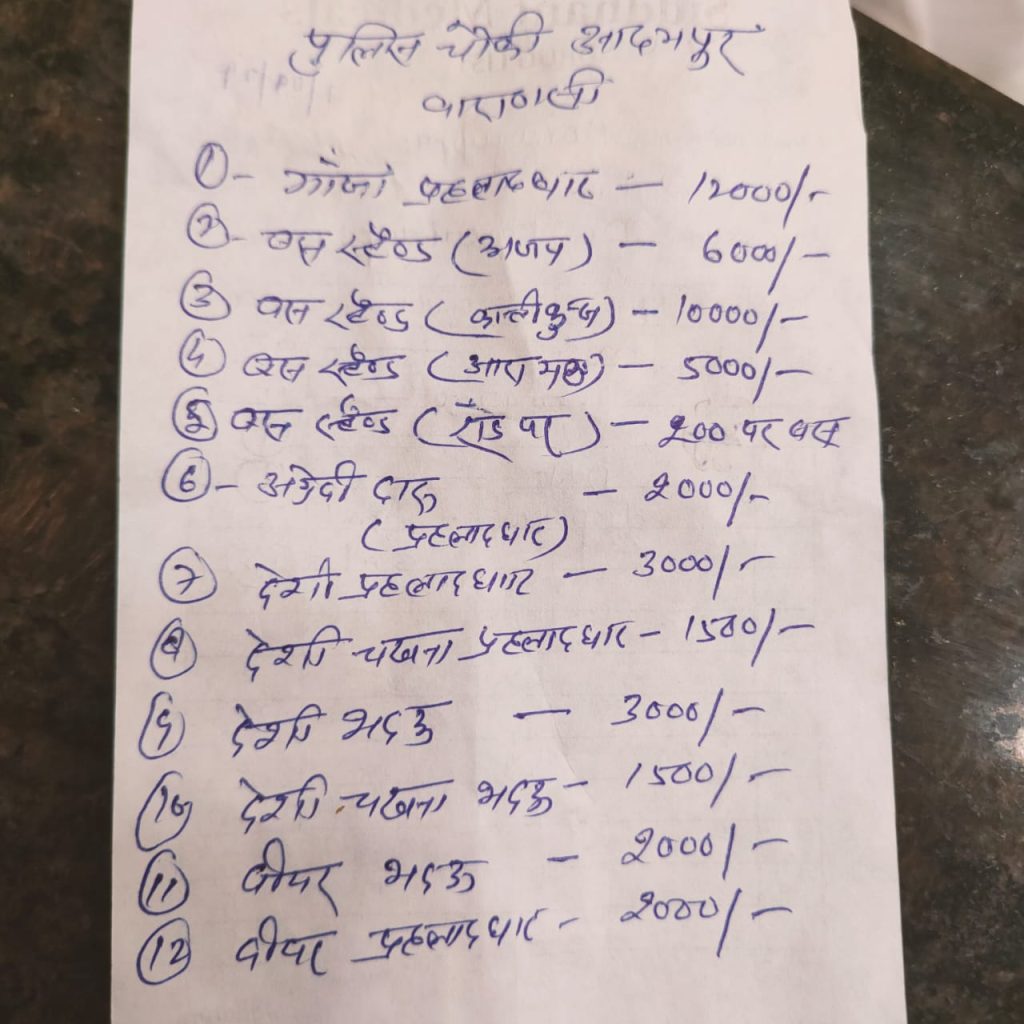 पुलिस चौकी आदमपुर
वाराणसी
① - गाँजा प्रहलादघाट — 12000/-
② - बस स्टैण्ड (अजय) — 6000/-
③ बस स्टैण्ड (कालीकुन्ज) — 10000/-
④ बस स्टैण्ड — 5000/-
⑤ बस स्टैण्ड (रोड पर) — 200 पर बस
⑥ - अंग्रेजी दारू — 2000/-
(प्रहलादघाट)
⑦ देशी प्रहलादघाट — 3000/-
⑧ देशी चखना प्रहलादघाट — 1500/-
⑨ देशी भदऊ — 3000/-
⑩ देशी चखना भदऊ - 1500/-
⑪ बीयर भदऊ — 2000/-
⑫ बीयर प्रहलादघाट - 2000/-